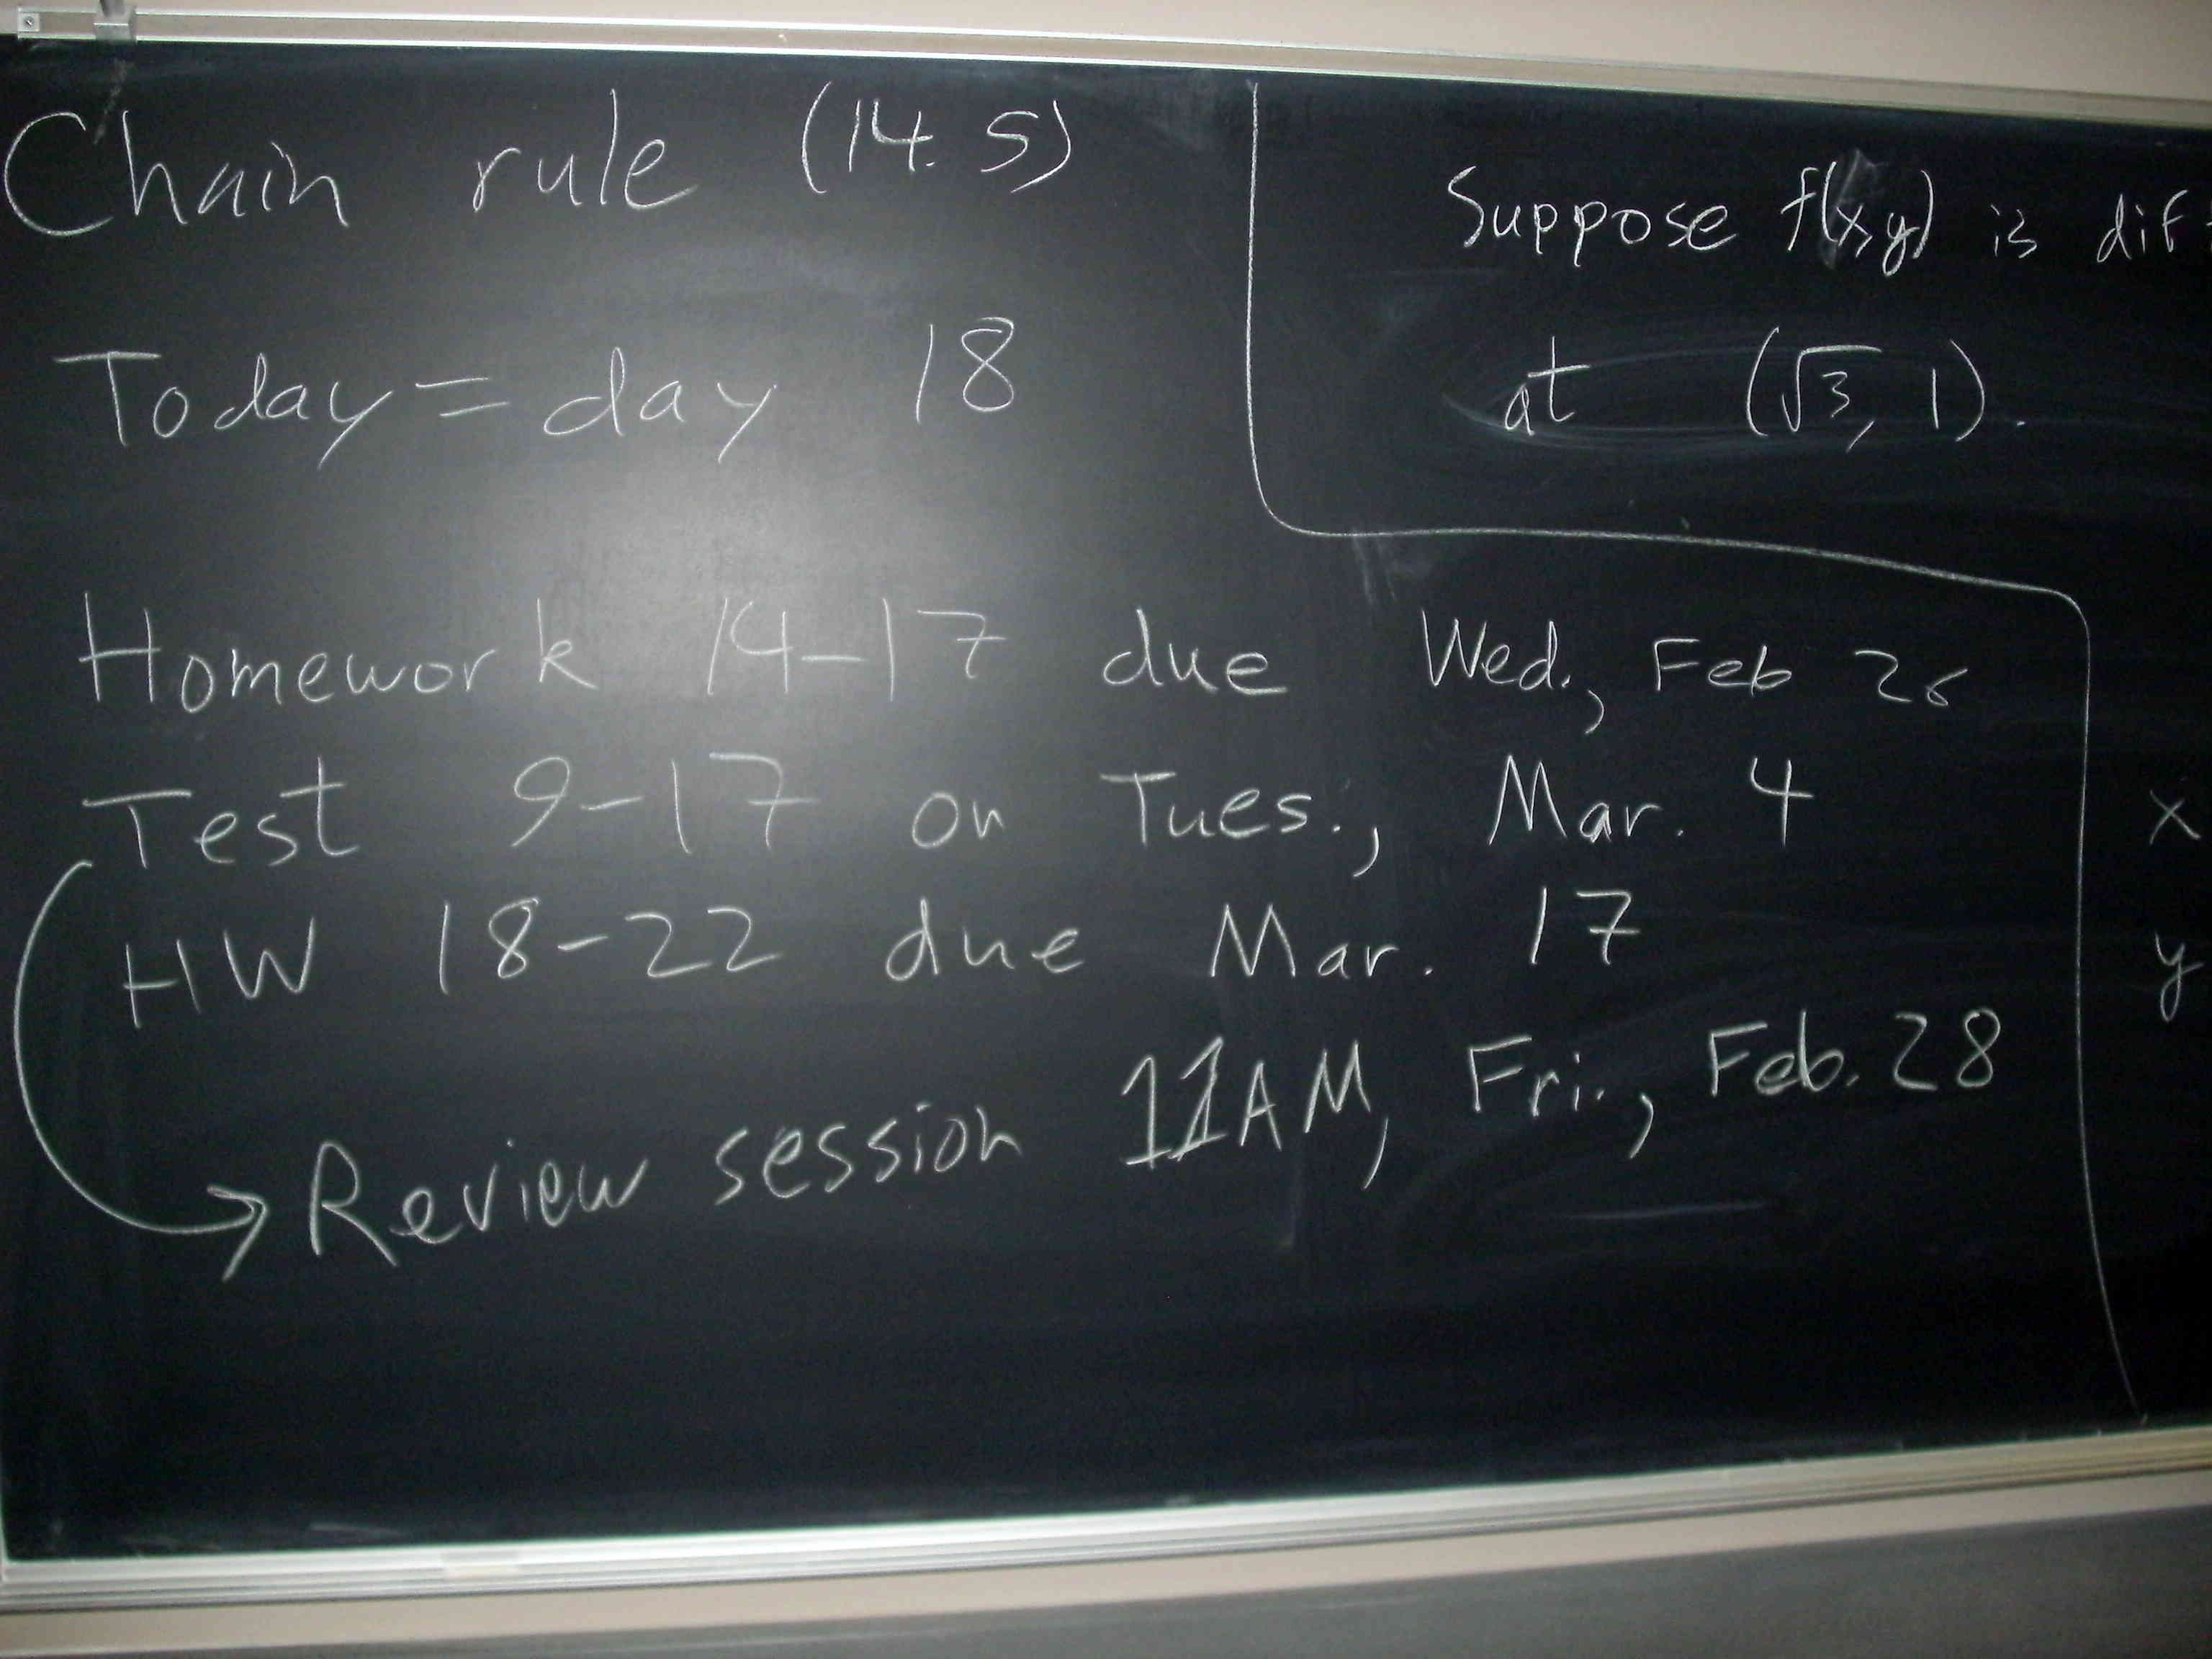 Chain rule (14.5)
Today = day 18
Homework 14-17 due Wed., Feb 26
Test 9-17 on Tues., Mar. 4
HW 18-22 due Mar. 17
Review session 11AM, Fri., Feb. 28
Suppose f(x,y) is dif
at (√3, 1).
x
y